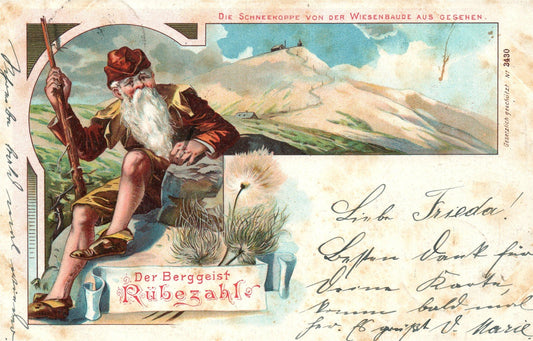 Die Schneekoppe von der Wiesenbaude aus gesehen.
Gesetzlich geschützt. Nr 3430
Der Berggeist
Rübezahl
Liebe Frieda!
Besten Dank für
Deine Karte,
komm bald mal
her. Es grüßt D. Marie.